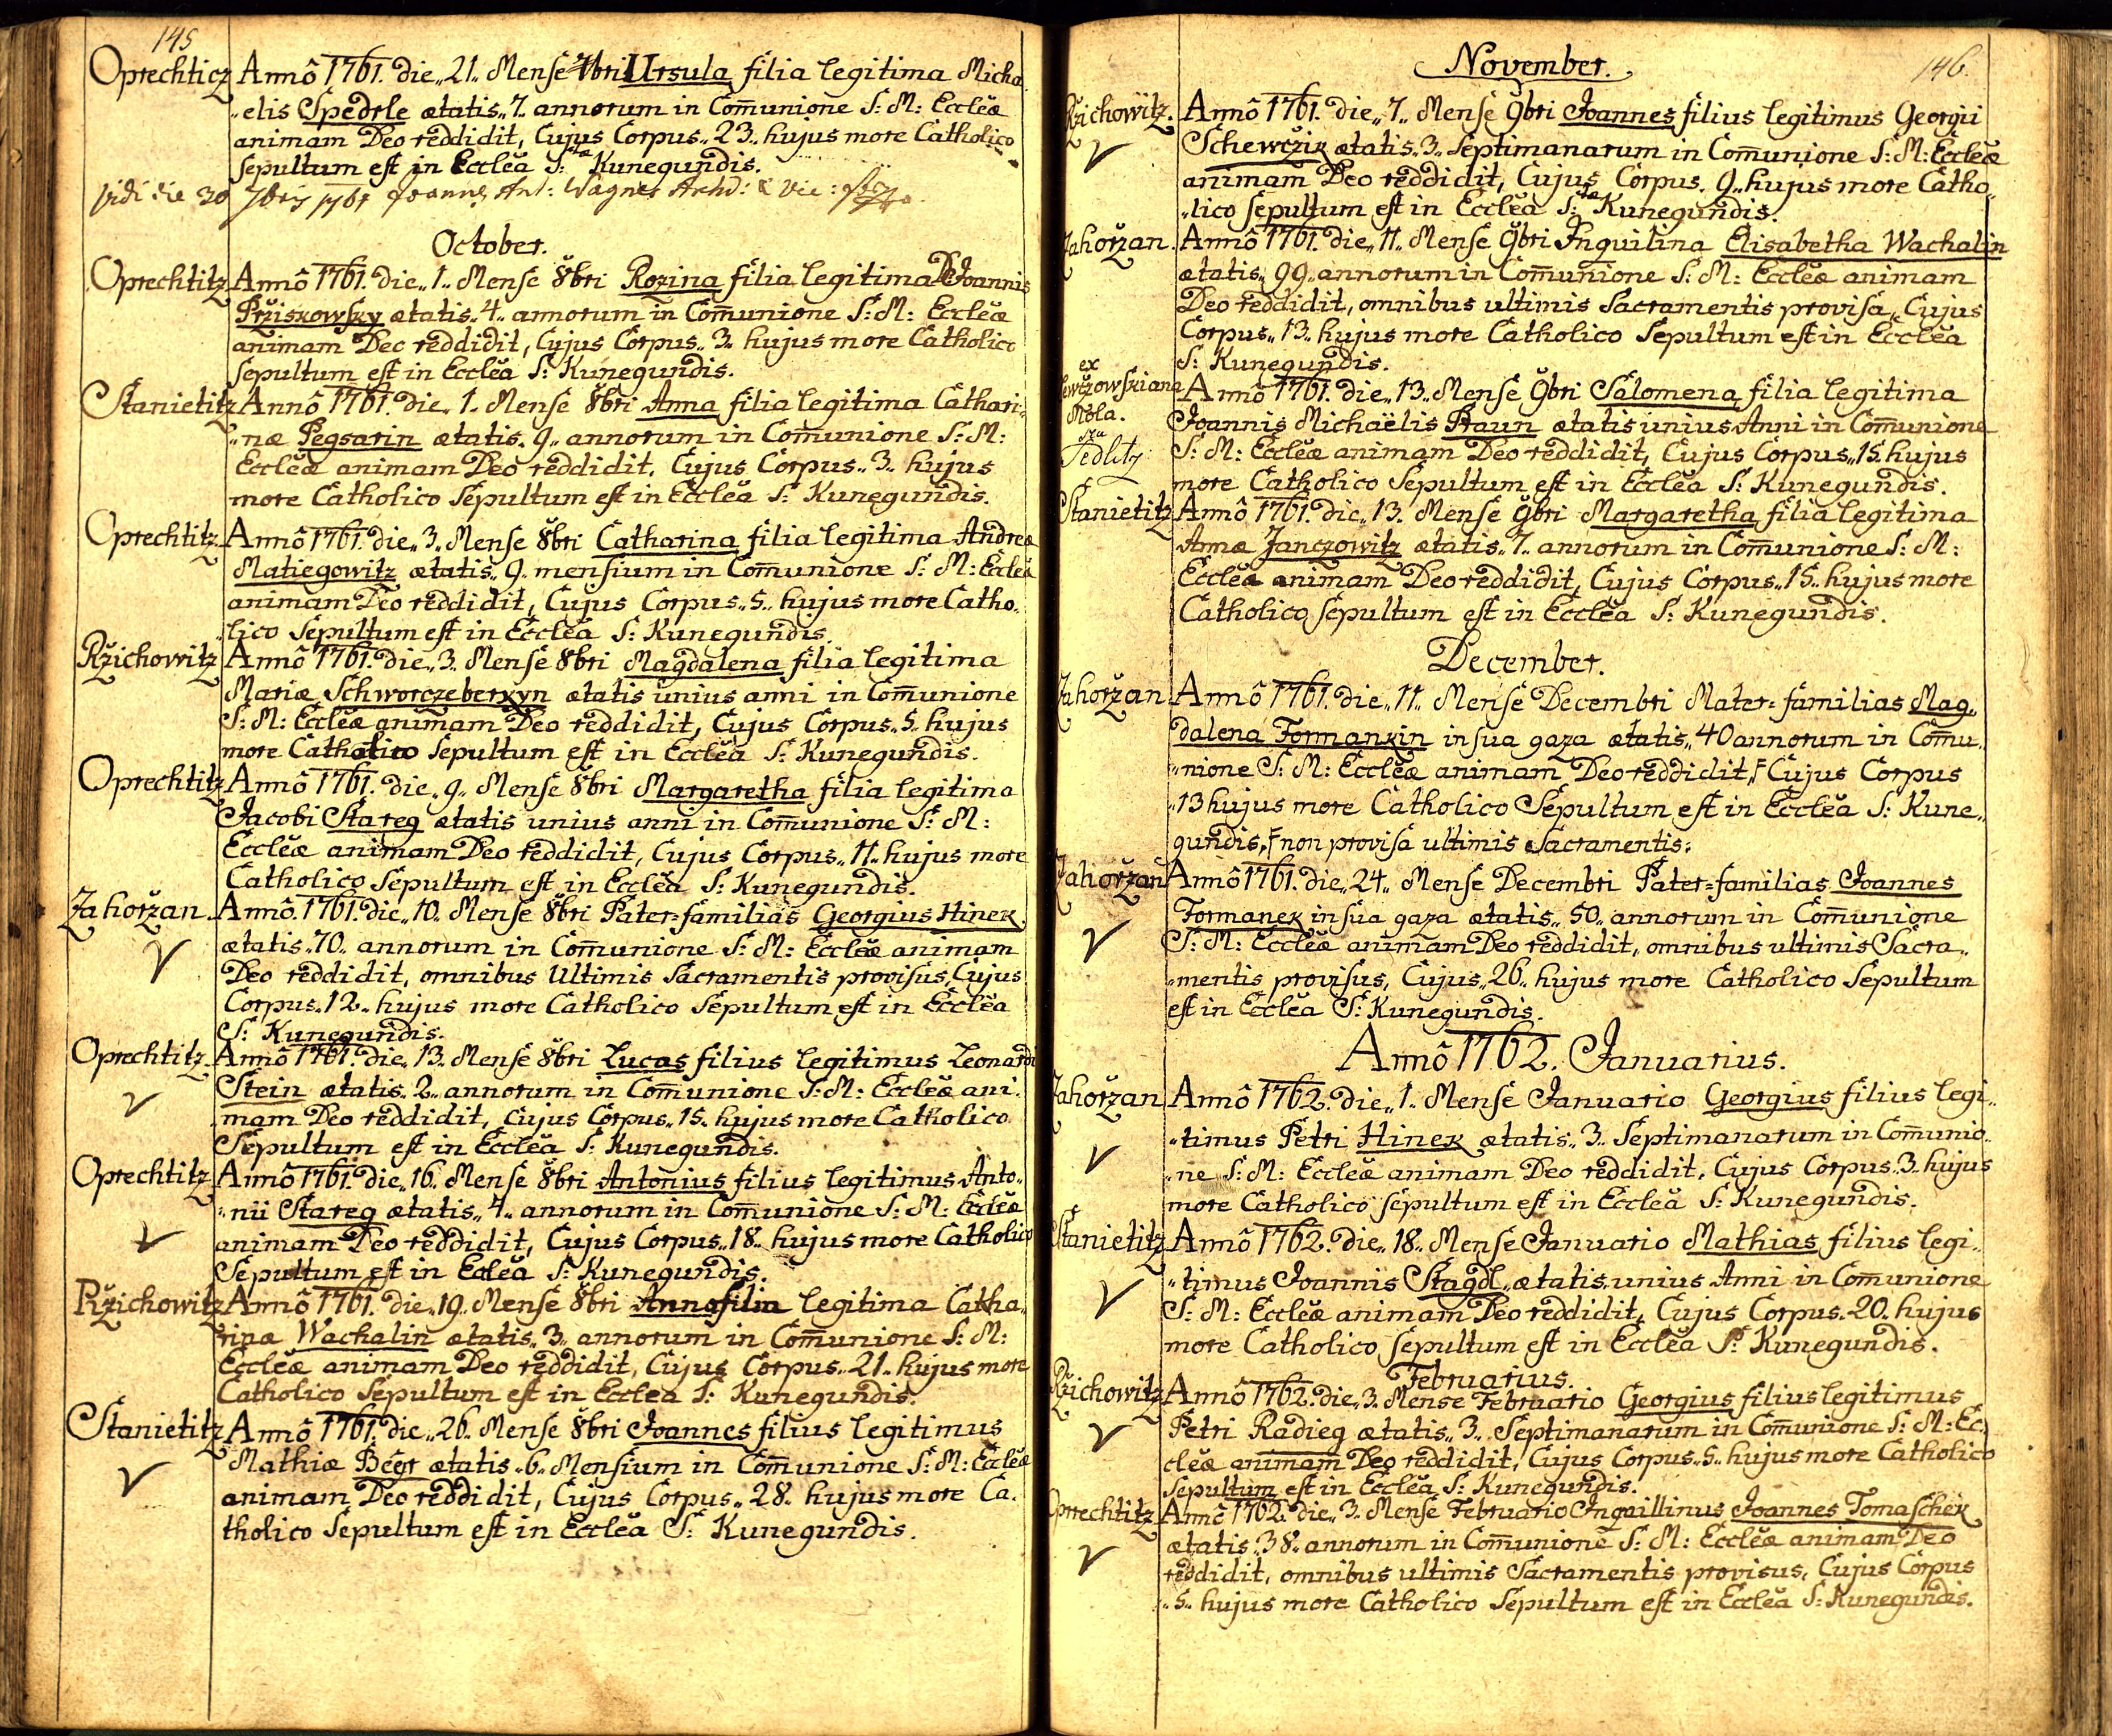 145
Oprechticz Annô 1761. die „21„ Mense 7bri Ursula filia legitima Micha„
„elis Spedrle ætatis „7„ annorum in Com̄unione S: M: Eccleæ
animam Deo reddidit, Cujus Corpus „23„ hujus more Catholico
sepultum est in Ecclea S:tæ Kunegundis.
Vidi die 30 7bris 1761 Joannes Ant: Wagner Archid: & Vic:
October.
Oprechtitz Annô 1761. die „1„ Mense 8bri Rozina filia legitima Dṉ Joannis
Pržiskowsky ætatis „4„ annorum in Com̄unione S: M: Eccleæ
animam Deo reddidit, Cujus Corpus „3„ hujus more Catholico
sepultum est in Ecclea S: Kunegundis.
Stanietitz Annô 1761. die „1„ Mense 8bri Anna filia legitima Cathari„
„næ Pegsarin ætatis „9„ annorum in Com̄unione S: M:
Eccleæ animam Deo reddidit, Cujus Corpus „3„ hujus
more Catholico Sepultum est in Ecclea S: Kunegundis.
Oprechtitz Annô 1761. die „3„ Mense 8bri Catharina filia legitima Andreæ
Matiegowitz ætatis „9„ mensium in Com̄unione S: M: Eccleæ
animam Deo reddidit, Cujus Corpus „5„ hujus more Catho„
„lico Sepultum est in Ecclea S: Kunegundis.
Ržichowitz Annô 1761. die „3„ Mense 8bri Magdalena filia legitima
Mariæ Schworczeberkyn ætatis unius anni in Com̄unione
S: M: Eccleæ animam Deo reddidit, Cujus Corpus „5„ hujus
more Catholico Sepultum est in Ecclea S: Kunegundis.
Oprechtitz Annô 1761. die „9„ Mense 8bri Margaretha filia legitima
Jacobi Stareg ætatis unius anni in Com̄unione S: M:
Eccleæ animam Deo reddidit, Cujus Corpus „11„ hujus more
Catholico Sepultum est in Ecclea S: Kunegundis.
Zahoržan. Annô 1761. die „10„ Mense 8bri Pater=familias Georgius Hinek
ætatis „70„ annorum in Com̄unione S: M: Eccleæ animam
Deo reddidit, omnibus Ultimis Sacramentis provisus, Cujus
Corpus „12„ hujus more Catholico Sepultum est in Ecclea
S: Kunegundis.
Oprechtitz. Annô 1761. die „13„ Mense 8bri Lucas filius legitimus Leonardi
Stein ætatis „2„ annorum in Com̄unione S: M: Eccleæ ani„
mam Deo reddidit, Cujus Corpus „15„ hujus more Catholico
Sepultum est in Ecclea S: Kunegundis.
Oprechtitz Annô 1761. die „16„ Mense 8bri Antonius filius legitimus Anto„
„nii Stareg ætatis „7„ annorum in Com̄unione S: M: Eccleæ
animam Deo reddidit, Cujus Corpus „18„ hujus more Catholico
Sepultum est in Ecclea S: Kunegundis.
Ržichowitz Annô 1761. die „19„ Mense 8bri Anna filia legitima Catha„
rinæ Wachalin ætatis „3„ annorum in Com̄unione S: M:
Eccleæ animam Deo reddidit, Cujus Corpus „21„ hujus more
Catholico Sepultum est in Ecclea S: Kunegundis.
Stanietitz Annô 1761. die „26„ Mense 8bri Joannes filius legitimus
Mathiæ Begr ætatis „6„ Mensium in Com̄unione S: M: Eccleæ
animam Deo reddidit, Cujus Corpus „28„ hujus more Ca„
tholico Sepultum est in Ecclea S: Kunegundis.
146.
November.
Ržichowitz. Annô 1761. die „7„ Mense 9bri Joannes filius legitimus Georgii
Schewczik ætatis „3„ Septimanarum in Com̄unione S: M: Eccleæ
animam Deo reddidit, Cujus Corpus „9„ hujus more Catho„
„lico sepultum est in Ecclea S:tæ Kunegundis.
Zahoržan. Annô 1761. die „11„ Mense 9bri Inquilina Elisabetha Wachalin
ætatis „99„ annorum in Com̄unione S: M: Eccleæ animam
Deo reddidit, omnibus ultimis Sacramentis provisa, Cujus
Corpus „13„ hujus more Catholico Sepultum est in Ecclea
S: Kunegundis.
ex
ewtzowskiana
Mola.
Sedlitz
Annô 1761. die „13„ Mense 9bri Salomena filia legitima
Joannis Michaëlis Braun ætatis unius Anni in Com̄unione
S: M: Eccleæ animam Deo reddidit, Cujus Corpus „15„ hujus
more Catholico Sepultum est in Ecclea S: Kunegundis.
Stanietitz Annô 1761. die „13„ Mense 9bri Margaretha filia legitima
Annæ Janczowitz ætatis „7„ annorum in Com̄unione S: M:
Eccleæ animam Deo reddidit, Cujus Corpus „15„ hujus more
Catholico sepultum est in Ecclea S: Kunegundis.
December.
Zahoržan Annô 1761. die „11„ Mense Decembri Mater=familias Mag„
dalena Formankin in sua gaza ætatis „40 annorum in Com̄u„
„nione S: M: Eccleæ animam Deo reddidit, Cujus Corpus
„13 hujus more Catholico Sepultum est in Ecclea S: Kune„
gundis, non provisa ultimis Sacramentis.
Zahoržan Annô 1761. die „24„ Mense Decembri Pater=familias Joannes
Formanek in sua gaza ætatis „50„ annorum in Com̄unione
S: M: Eccleæ animam Deo reddidit, omnibus ultimis Sacra„
„mentis provisus, Cujus „26„ hujus more Catholico Sepultum
est in Ecclea S: Kunegundis.
Annô 1762. Januarius.
Zahoržan Annô 1762. die „1„ Mense Januario Georgius filius legi„
„timus Petri Hinek ætatis „3„ Septimanarum in Com̄unio„
„ne S: M: Eccleæ animam Deo reddidit, Cujus Corpus „3„ hujus
more Catholico sepultum est in Ecclea S: Kunegundis.
Stanietitz Annô 1762. die „18„ Mense Januario Mathias filius legi„
„timus Joannis Stagdl, ætatis unius Anni in Com̄unione
S: M: Eccleæ animam Deo reddidit, Cujus Corpus „20„ hujus
more Catholico Sepultum est in Ecclea S: Kunegundis.
Februarius.
Ržichowitz Annô 1762. die „3„ Mense Februario Georgius filius legitimus
Petri Radieg ætatis „3„ Septimanarum in Com̄unione S: M: Ec„
cleæ animam Deo reddidit, Cujus Corpus „5„ hujus more Catholico
Sepultum est in Ecclea S: Kunegundis.
Oprechtitz Annô 1762. die „3„ Mense Februario Inquillinus Joannes Tomaschek
ætatis „38„ annorum in Com̄unione S: M: Eccleæ animam Deo
reddidit, omnibus ultimis Sacramentis provisus, Cujus Corpus
„5„ hujus more Catholico Sepultum est in Ecclea S: Kunegundis.